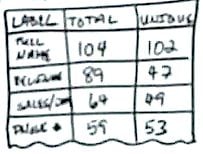 LABEL TOTAL UNIQUE
FULL NAME 104 102
REVENUE 89 47
SALES/ 64 49
59 53